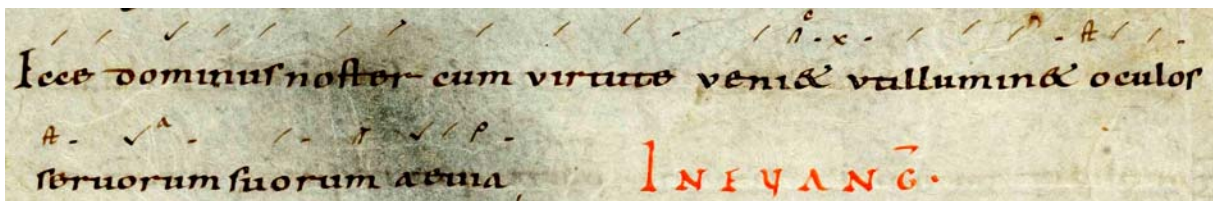 Icce dominus noster cum virtute veni& utillumin& oculos
seruorum suorum aeuia IN EVANḠ.